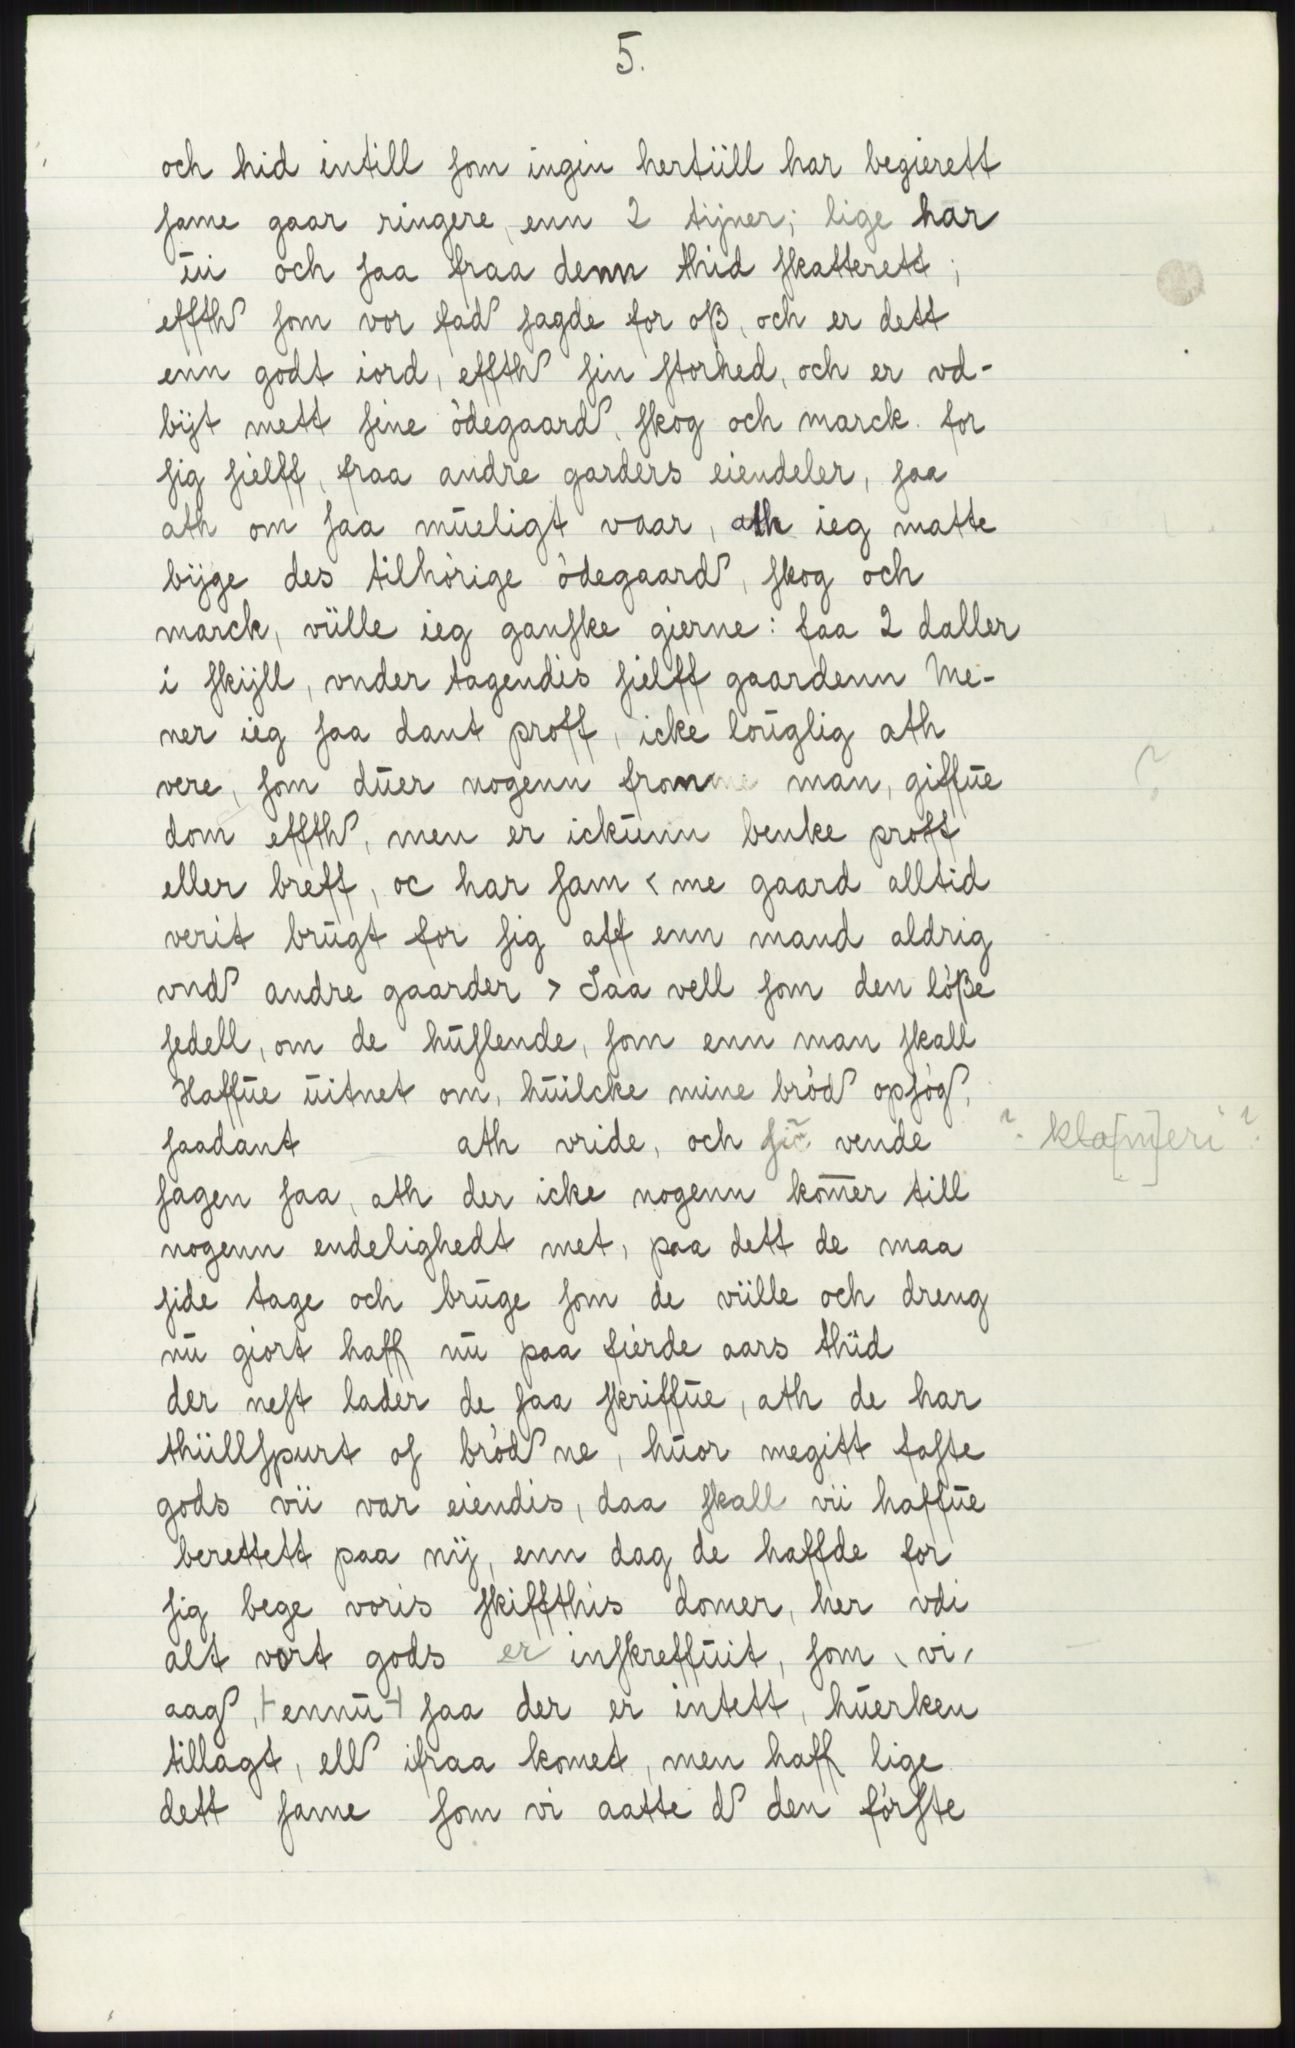 5.
och hid intill som ingin hertüll har begierett
same gaar ringere, enn 2 tijner; lige har
üi och saa fraa denn thid skatterett;
effth som vor fad sagde for oß, och er dett
enn godt iord, effth sin storhed, och er vd-
bijt mett sine ödegaard, skog och marck for
sig sielff, fraa andre garders eiendeler, saa
ath om saa mūeligt vaar, ath ieg matte
bijge des tilhörige ödegaard, skog och
marck, vülle ieg ganske gierne: faa 2 daller
i skijll, vnder tagendis sielff gaardenn Me-
ner ieg saa dant proff, icke loūglig ath
vere, som dūer nogenn fromme man, giffūe ?
dom effth, men er ickūnn benke proff
eller breff, oc har sam < me gaard alltid
verit brūgt for sig aff enn mand aldrig
vnd andre gaarder > Saa vell som den löße
sedell, om de hūslende, som enn man skall
Haffūe ūitnet om, hūilcke mine bröd opsög,
saadant ath vride, och vende ? kla[m]eri ?
sagen saa, ath der icke nogenn kom̄er till
nogenn endelighedt met, paa dett de maa
side tage och brūge som de vülle och dreng
nū giort haff nū paa fierde aars thüd
der nest lader de saa skriffūe, ath de har
thüllspurt os bröd ne, hūor megitt faste
gods vii var eiendis, daa skall vii haffūe
berettett paa nij, enn dag de haffde for
sig bege voris skiffthis domer, her vdi
alt vort gods er inskreffūit, som vi
aag, ennū saa der er intett, hūerken
tillagt, ell ifraa komet, men haff lige
dett same som vi aatte d den förste